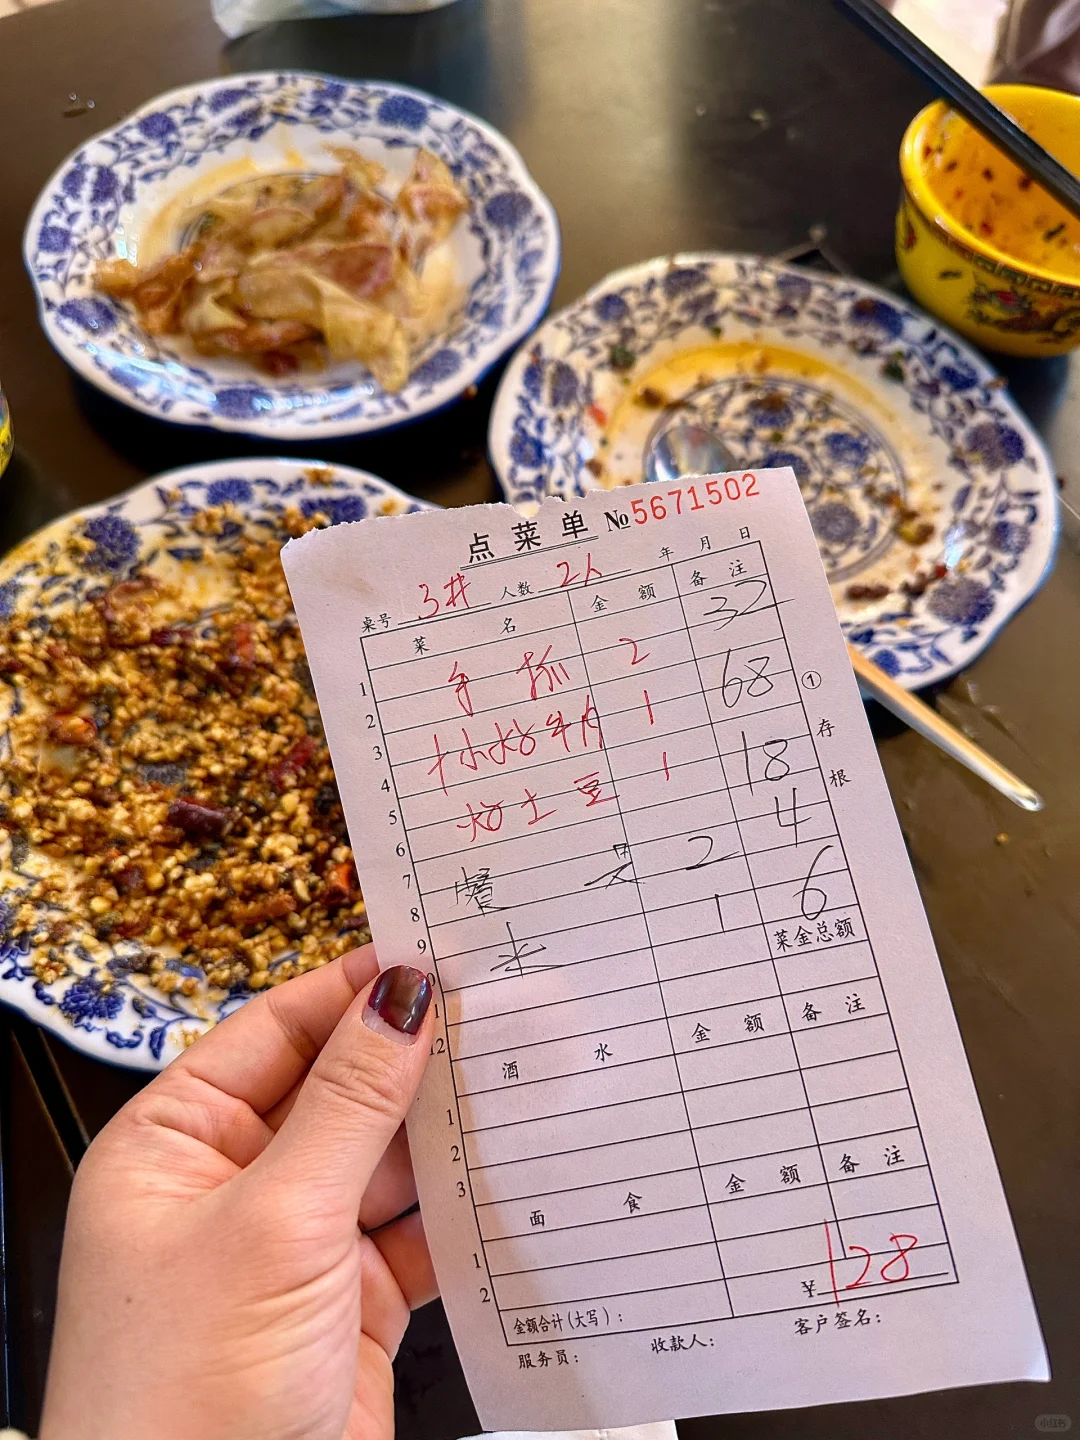 点菜单 №5671502
年 月 日
桌号 3井 人数 2人
菜 名 金 额 备 注
32
1 手 抓 2
2 68
3 十小炒牛肉 1
4 18
5 炒土豆 1
6 4
7 餐 具 2
8 6
9 水 1
菜金总额
12
酒 水 金 额 备 注
1
2
3
面 食 金 额 备 注
1
2
¥128
金额合计(大写):
服务员: 收款人: 客户签名:
① 存 根
小红书